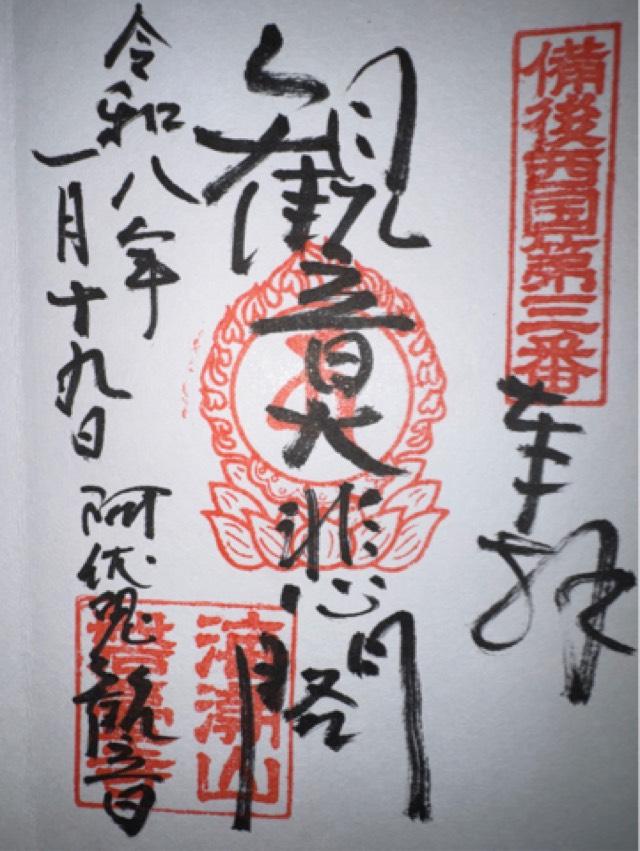 備後西国第三番
奉拝
観音大悲閣
令和八年
一月十九日
阿伏兎観音
海潮山
磐臺寺